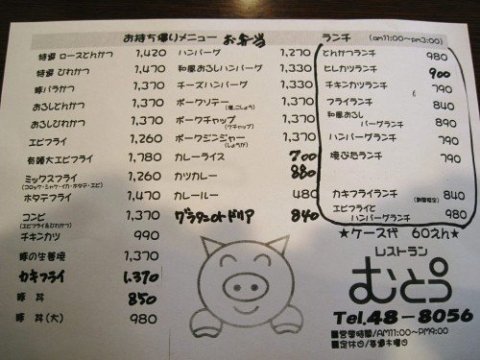 お持ち帰りメニュー お弁当
特選 ロースとんかつ 1,420
特選 ひれかつ 1,370
豚バラかつ 1,370
おろしとんかつ 1,370
おろしひれかつ 1,370
エビフライ 1,260
有頭大エビフライ 1,780
ミックスフライ 1,370
(コロッケ・シャケ・イカ・ホタテ・エビ)
ホタテフライ 1,470
コンビ 1,370
(エビフライ&ひれかつ)
チキンカツ 990
豚の生姜焼 1,370
カキフライ 1,370
豚丼 850
豚丼(大) 980
ハンバーグ 1,270
和風おろしハンバーグ 1,330
チーズハンバーグ 1,330
ポークソテー 1,370
(塩、こしょう)
ポークチャップ 1,370
(ケチャップ)
ポークジンジャー 1,370
(しょうが)
カレーライス 700
カツカレー 880
カレールー 480
グラタンorドリア 840
ランチ (am11:00〜pm3:00)
とんかつランチ 980
ヒレカツランチ 900
チキンカツランチ 790
フライランチ 840
和風おろし
バーグランチ 890
ハンバーグランチ 790
焼ぶたランチ 790
カキフライランチ (期間限定) 840
エビフライと
ハンバーグランチ 980
★ケース代 60えん★
レストラン
むとう
Tel.48-8056
■営業時間/AM11:00〜PM9:00
■定休日/毎週木曜日